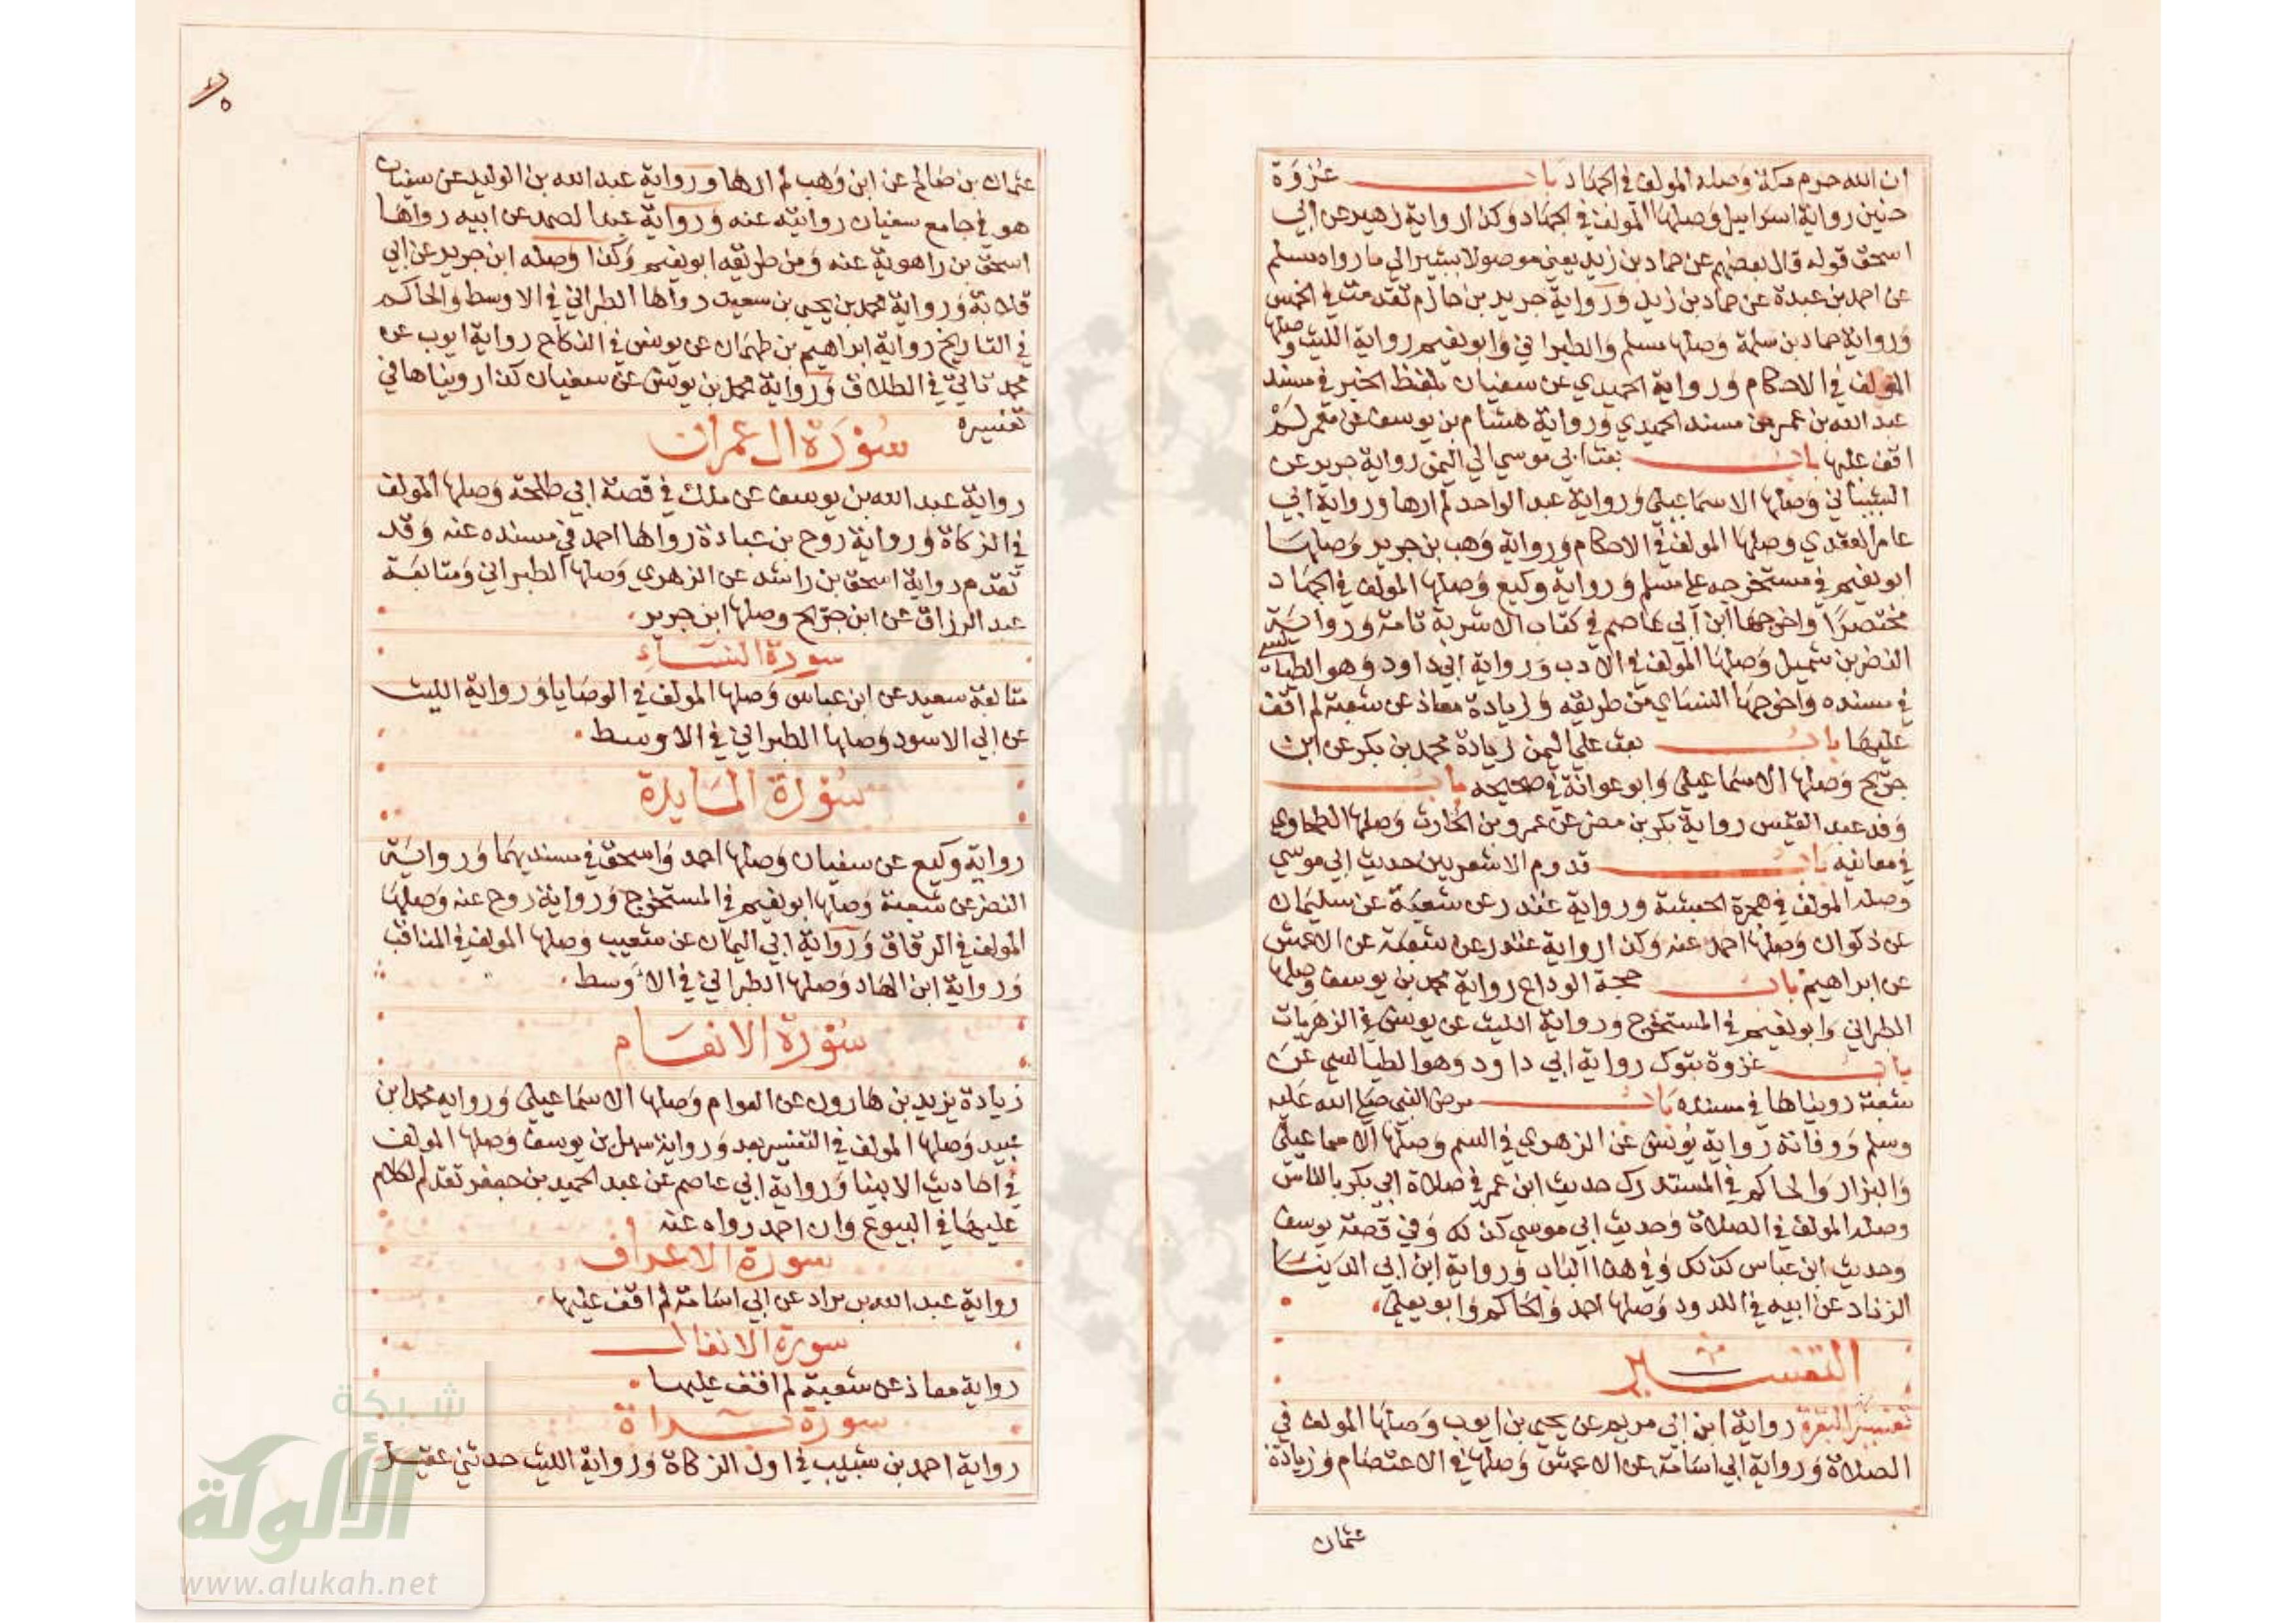 ان الله حرم مكة وصله المولف في الجهاد باب غزوة
حنين رواية اسراييل وصلها المولف في الجهاد وكذا رواية زهير عن ابي
اسحق قوله قال بعضهم عن حماد بن زيد يعني موصولا يشير الي ما رواه مسلم
عن احمد بن عبدة عن حماد بن زيد ورواية جرير بن حازم تقدمت في الخمس
ورواية حماد بن سلمة وصلها مسلم والطبراني وابو نعيم رواية الليث وصلها
المولف في الاحكام ورواية الحميدي عن سفيان بلفظ الخبر في مسند
عبد الله بن عمر من مسند الحميدي ورواية هشام بن يوسف عن معمر لم
اقف عليها باب بعث ابي موسي الي اليمن رواية جرير عن
الشيباني وصلها الاسماعيلي ورواية عبد الواحد لم ارها ورواية ابي
عامر العقدي وصلها المولف في الاحكام ورواية وهب بن جرير وصلها
ابو نعيم في مستخرجه علي مسلم ورواية وكيع وصلها المولف في الجهاد
مختصرا واخرجها ابن ابي عاصم في كتاب الاشربة تامة ورواية
النضر بن شميل وصلها المولف في الادب ورواية ابي داود وهو الطيالسي
في مسنده واخرجها النساي من طريقه وزيادة معاذ عن شعبة لم اقف
عليها باب بعث علي اليمن زيادة محمد بن بكر عن ابن
جريج وصلها الاسماعيلي وابو عوانة في صحيحه باب
وفد عبد القيس رواية بكر بن مضر عن عمرو بن الحارث وصلها الطحاوي
في معانيه باب قدوم الاشعريين حديث ابي موسي
وصله المولف في هجرة الحبشة ورواية غندر عن شعبة عن سليمان
عن ذكوان وصلها احمد عنه وكذا رواية غندر عن شعبة عن الاعمش
عن ابراهيم باب حجة الوداع رواية محمد بن يوسف وصلها
الطبراني وابو نعيم في المستخرج ورواية الليث عن يونس في الزهريات
باب غزوة تبوك رواية ابي داود وهو الطيالسي عن
شعبة رويناها في مسنده باب مرض النبي صلي الله عليه
وسلم ووفاته رواية يونس عن الزهري في السم وصلها الاسماعيلي
والبزار والحاكم في المستدرك حديث ابن عمر في صلاة ابي بكر بالناس
وصله المولف في الصلاة وحديث ابي موسي كذلك وفي قصة يوسف
وحديث ابن عباس كذلك وفي هذا الباب ورواية ابن ابي الدنيا
الزناد عن ابيه في اللدود وصلها احمد والحاكم وابو يعلي
التفسير
تفسير البقرة رواية ابن ابي مريم عن يحيي بن ايوب وصلها المولف في
الصلاة ورواية ابي اسامة عن الاعمش وصلها في الاعتصام وزيادة
عثمان
عثمان بن صالح عن ابن وهب لم ارها ورواية عبد الله بن الوليد عن سفيان
هو في جامع سفيان روايته عنه ورواية عبد الصمد عن ابيه رواها
اسحق بن راهوية عنه ومن طريقه ابو نعيم وكذا وصله ابن جرير عن ابي
قلابة ورواية محمد بن يحيي بن سعيد رواها الطبراني في الاوسط والحاكم
في التاريخ رواية ابراهيم بن طهمان عن يونس في النكاح رواية ايوب عن
محمد تاتي في الطلاق ورواية محمد بن يوسف عن سفيان كذا رويناها في
تفسيره
سورة ال عمران
رواية عبد الله بن يوسف عن ملك في قصة ابي طلحة وصلها المولف
في الزكاة ورواية روح بن عبادة رواها احمد في مسنده عنه وقد
تقدم رواية اسحق بن راشد عن الزهري وصلها الطبراني ومتابعة
عبد الرزاق عن ابن جريج وصلها ابن جرير
سورة النساء
متابعة سعيد عن ابن عباس وصلها المولف في الوصايا ورواية الليث
عن ابي الاسود وصلها الطبراني في الاوسط
سورة المايدة
رواية وكيع عن سفيان وصلها احمد واسحق في مسنديهما ورواية
النضر عن شعبة وصلها ابو نعيم في المستخرج ورواية روح عنه وصلها
المولف في الرقاق ورواية ابي اليمان عن شعيب وصلها المولف في المناقب
ورواية ابن الهاد وصلها الطبراني في الاوسط
سورة الانعام
زيادة يزيد بن هارون عن العوام وصلها الاسماعيلي ورواية محمد ابن
عبيد وصلها المولف في التفسير بعد ورواية سهل بن يوسف وصلها المولف
في احاديث الانبيا ورواية ابي عاصم عن عبد الحميد بن جعفر تقدم الكلام
عليها في البيوع وان احمد رواه عنه
سورة الاعراف
رواية عبد الله بن براد عن ابي اسامة لم اقف عليها
سورة الانفال
رواية معاذ عن شعبة لم اقف عليها
سورة براة
رواية احمد بن شبيب في اول الزكاة ورواية الليث حدثني عقيل
شبكة
الألوكة
www.alukah.net